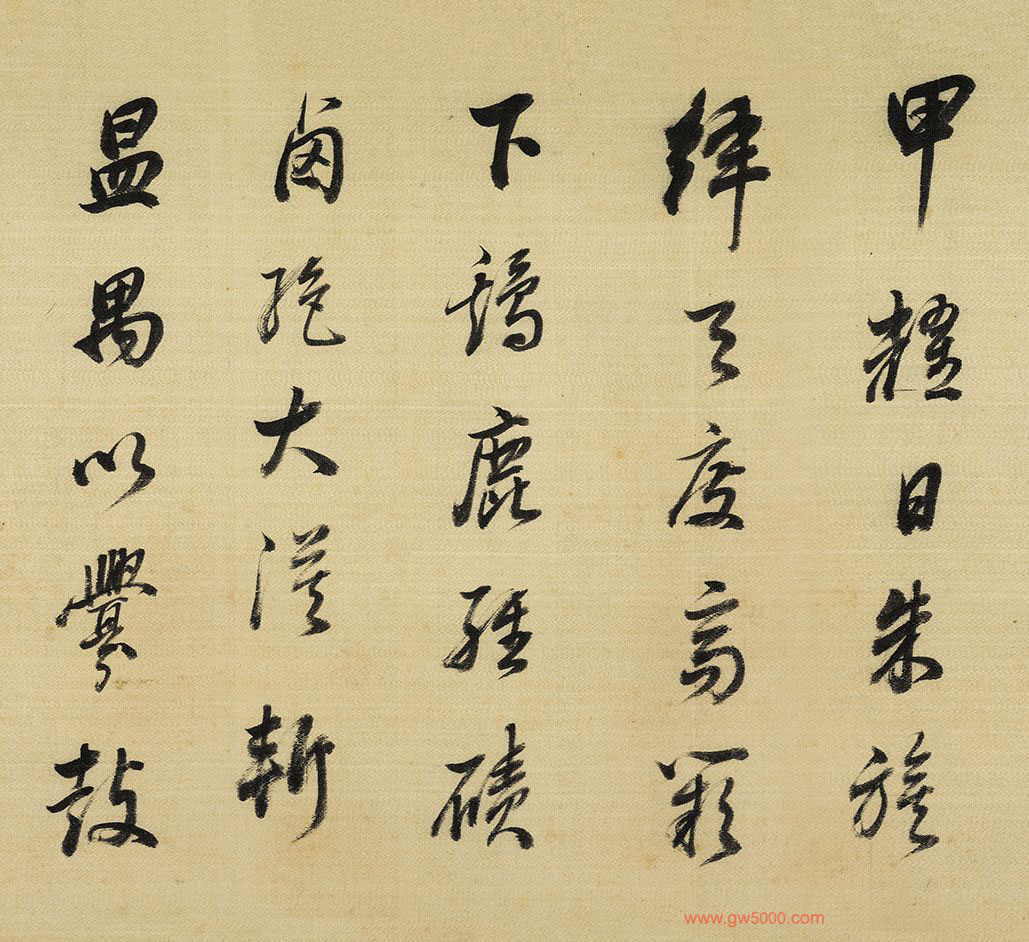 甲耀日朱旗
絳天度高闕
下鷄鹿經磧
鹵絕大漠斬
昷禺以釁鼓
www.gw5000.com